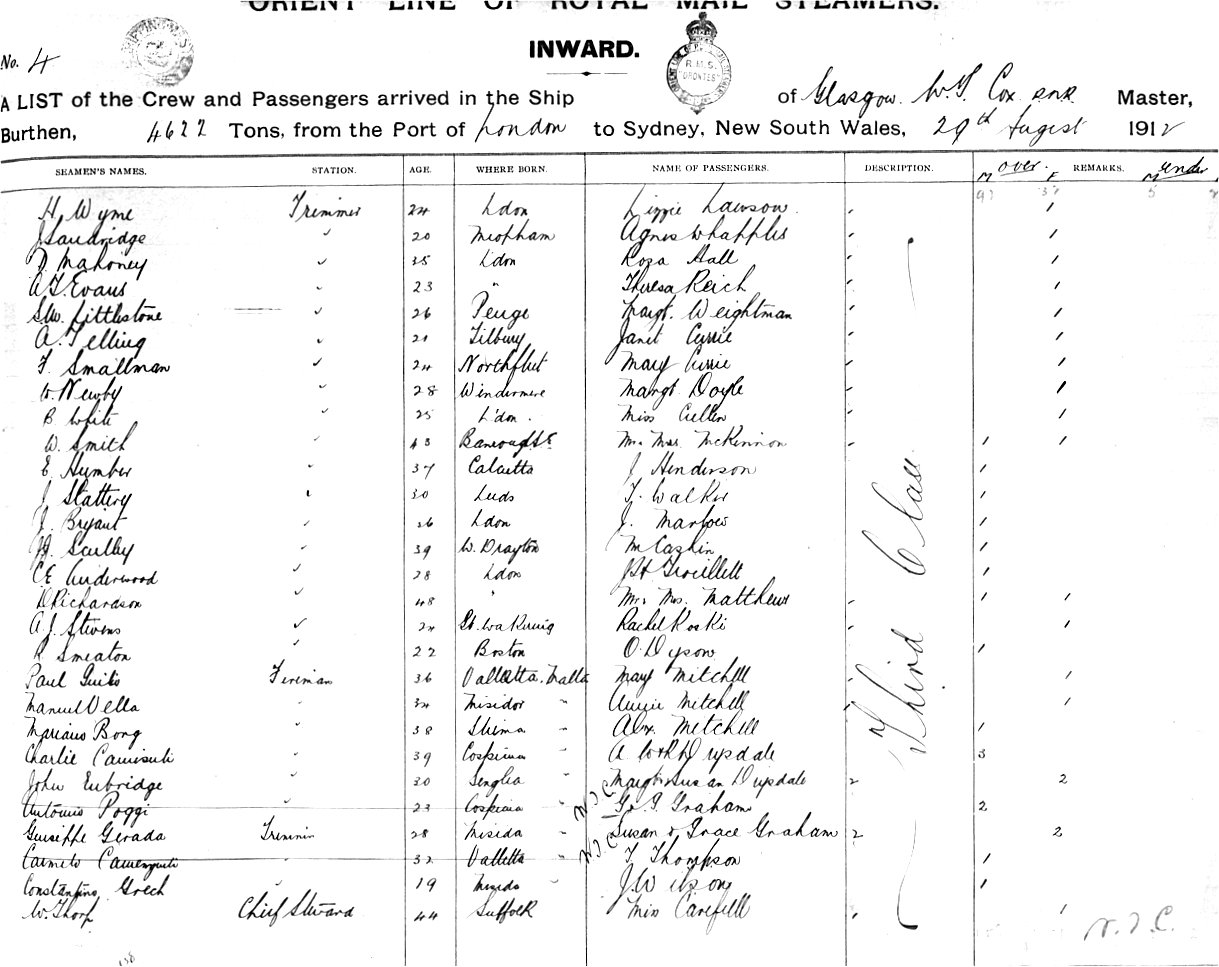 ORIENT LINE OF ROYAL MAIL STEAMERS.
No. 4
INWARD.
R.M.S. "ORONTES"
A LIST of the Crew and Passengers arrived in the Ship of Glasgow. Cox Master,
Burthen, 4622 Tons, from the Port of London to Sydney, New South Wales, 29th August 1912
SEAMEN'S NAMES. STATION. AGE. WHERE BORN. NAME OF PASSENGERS. DESCRIPTION. M over F REMARKS. M under
H. Wyme Trimmer 24 Ldon Lizzie Lawson
20 Meopham Agnes Whapples
D. Mahoney 35 Ldon Roza Hall
A.T. Evans 23 " Theresa Reich
Littlestone 26 Penge Margt. Weightman
A. Telling 21 Tilbury Janet Currie
F. Smallman 24 Northfleet Mary Currie
Newby 28 Windermere Margt Doyle
B. White 25 L'don. Miss Cullen
W. Smith 43 Mr. Mrs. McKinnon
E. Humber 37 Calcutta J Henderson
J. Slattery 30 Leeds T. Walker
J. Bryant 26 Ldon J. Marlow
Sculley 39 W. Drayton McCashin
C.E. Underwood 28 Ldon
D Richardson 48 " Mr. Mrs. Matthews
A.J. Stevens 24 Gt. Wakering Rachel Koski
R. Smeaton 22 Boston O. Dyson
Paul Fireman 36 Valletta. Malta Mary Mitchell
Manuel Vella 34 Misidor " Annie Mitchell
38 Sliema " Alex. Mitchell
Charlie 39 Cospicua A 3
John 30 Senglea " Margt & Susan 2 2
Antonio Poggi 23 Cospicua " N.Z.C. Graham 2
Guiseppe Gerada Trimmer 28 Misida " Susan & Grace Graham 2 2
Carmelo 32 Valletta " N.Z.C. T Thompson
Constantino Grech 19 Misida " J. Wilson
W. Thorp Chief Steward 44 Suffolk Miss
N.Z.C.
Third Class